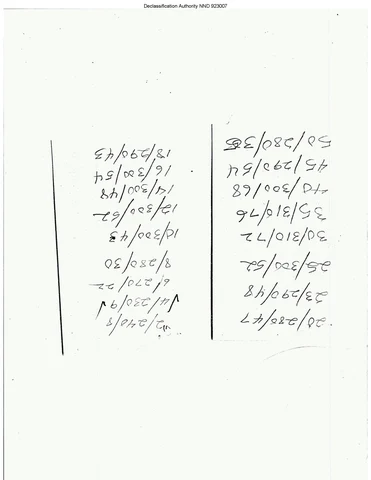 Declassification Authority NND 923007
20/280/47
23/290/48
25/300/52
30/310/72
35/310/76
40/300/68
45/290/54
50/280/35
2/240/8
4/230/9
6/270/22
8/280/30
10/300/43
12/300/52
14/300/48
16/300/54
18/290/43